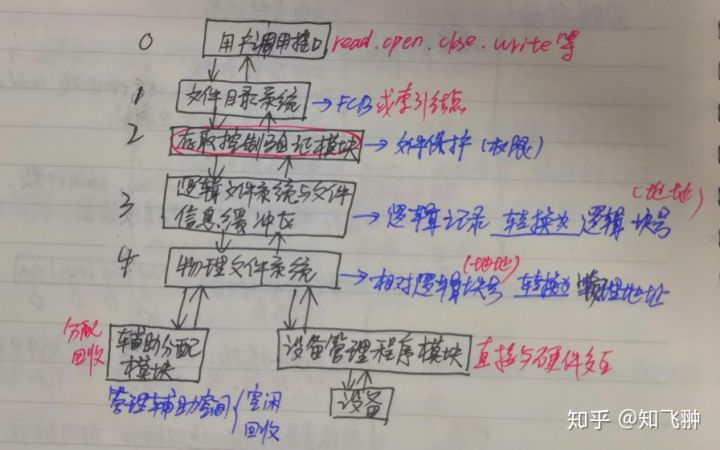 0 用户调用接口 read.open.close.write等
1 文件目录系统 →FCB或索引结点
2 存取控制验证模块 →文件保护(权限)
3 逻辑文件系统与文件
信息缓冲区 →逻辑记录 转换为 逻辑块号
(地址)
4 物理文件系统 →相对逻辑块号 转换为 物理地址
(地址)
分配
回收
辅助分配
模块
设备管理程序模块 直接与硬件交互
管理辅助空间{空闲
回收
设备
知乎 @知飞翀